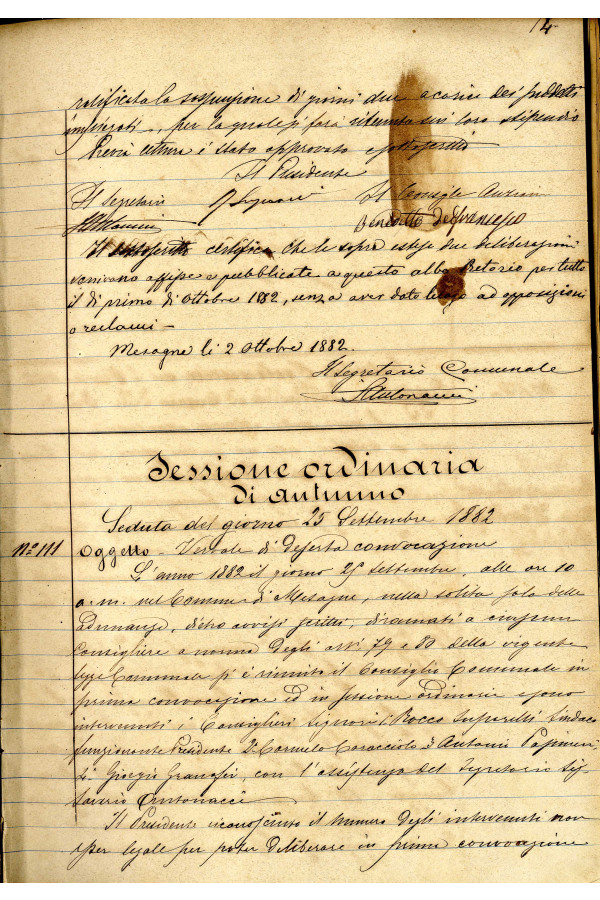 14
ratificata la sospensione di giorni due a carico dei suddetti
impiegati, per la quale si farà ritenuta sul loro stipendio
Previa lettura è stato approvato e sottoscritto
Il Presidente
Il Segretario Il Consigle Anziano
Benedetto Defrancesco
Il sottoscritto certifica che le sopra estese due deliberazioni
venivano affisse e pubblicate a questo albo Pretorio per tutto
il dì primo di Ottobre 1882, senza aver dato luogo ad opposizioni
o reclami —
Mesagne li 2 Ottobre 1882.
Il Segretario Comunale
SAntonacci
Sessione ordinaria
di autunno
Seduta del giorno 25 Settembre 1882
N° 111 Oggetto - Verbale di deserta convocazione
L'anno 1882 il giorno 25 Settembre, alle ore 10
a.m. nel Comune di Mesagne, nella solita sala delle
Adunanze, dietro avvisi scritti, diramati a ciascun
Consigliere a norma degli arti 79 e 80 della vigente
legge Comunale si è riunito il Consiglio Comunale in
prima convocazione ed in sessione ordinaria e sono
intervenuti i Consiglieri Signori 1. Rocco Sindaco
funzionante Presidente 2. Carmelo Caracciolo 3. Antonio
4. Giorgio Granafei, con l'assistenza del Segretario Sig.
Saverio Antonacci
Il Presidente riconosciuto il numero degli intervenuti non
esser legale per poter deliberare in prima convocazione